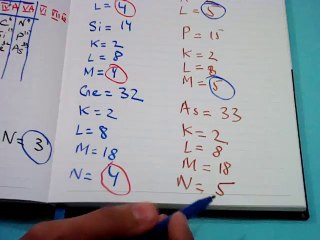 IV A V A VI
N = 3
L = 4
Si = 14
K = 2
L = 8
M = 4
Ge = 32
K = 2
L = 8
M = 18
N = 4
L = 5
P = 15
K = 2
L = 8
M = 5
As = 33
K = 2
L = 8
M = 18
N = 5